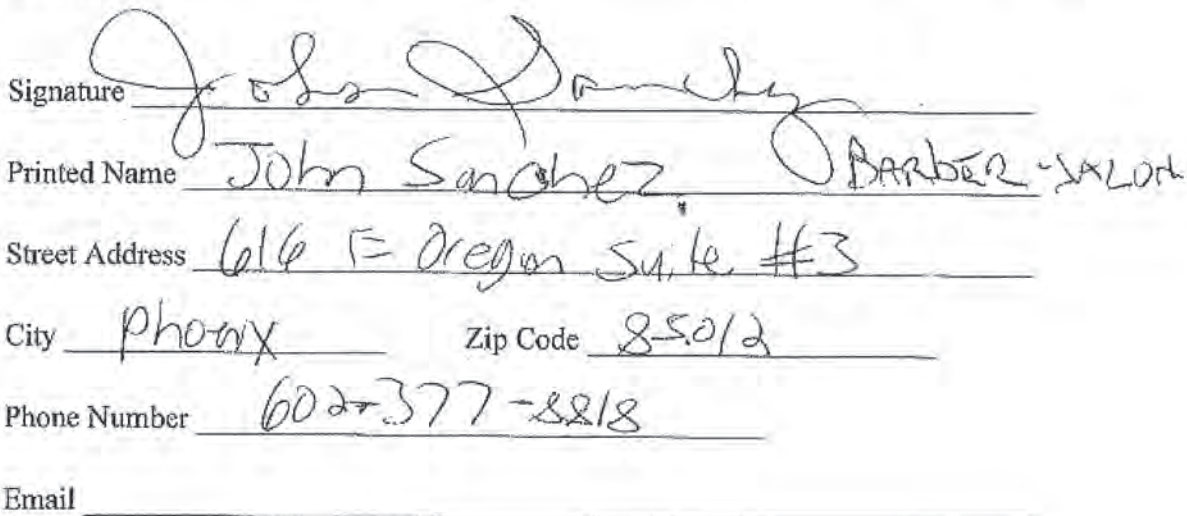 Signature John Sanchez
Printed Name John Sanchez BARBER-SALON
Street Address 616 E Oregon Suite #3
City Phoenix Zip Code 85012
Phone Number 602-377-8818
Email